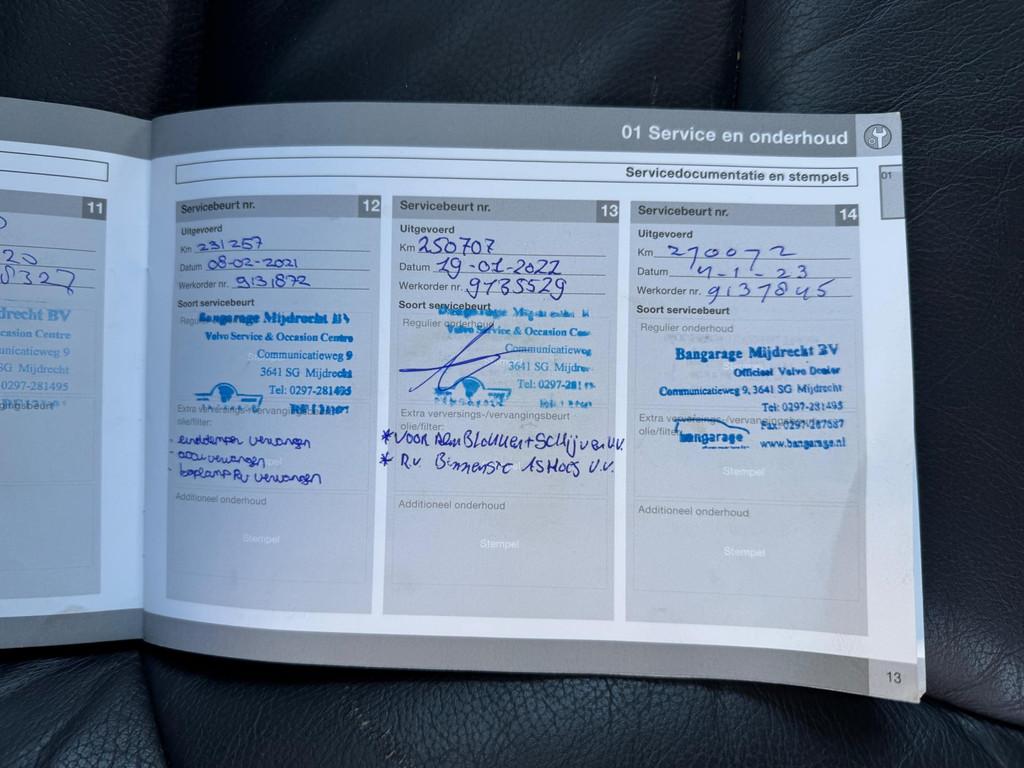 01 Service en onderhoud
01
Servicedocumentatie en stempels
11
20
8327
drecht BV
casion Centre
municatieweg 9
SG Mijdrecht
0297-281495
vangingsbeurt
Servicebeurt nr. 12
Uitgevoerd
Km 231257
Datum 08-02-2021
Werkorder nr. 9131872
Soort servicebeurt
Bangarage Mijdrecht BV
Volvo Service & Occasion Centre
Communicatieweg 9
3641 SG Mijdrecht
Tel: 0297-281495
Extra verversings-/vervangingsbeurt
olie/filter:
- einddemper vervangen
- accu vervangen
vervangen
Additioneel onderhoud
Stempel
Servicebeurt nr. 13
Uitgevoerd
Km 250707
Datum 19-01-2022
Werkorder nr. 9135529
Soort servicebeurt
Regulier onderhoud
Volvo Service & Occasion Cen
Communicatieweg
3641 SG Mijdrec
Tel: 0297-281
Extra verversings-/vervangingsbeurt
olie/filter:
* Voor RemBlokken + Schijven V.V.
* R.V. Binnenste ASHoes V.V.
Additioneel onderhoud
Stempel
Servicebeurt nr. 14
Uitgevoerd
Km 270072
Datum 4-1-23
Werkorder nr. 9137845
Soort servicebeurt
Regulier onderhoud
Bangarage Mijdrecht BV
Officieel Volvo Dealer
Communicatieweg 9, 3641 SG Mijdrecht
Tel: 0297-281495
Extra verversings-/vervangingsbeurt
Fax: 0297-287687
olie/filter:
bangarage
www.bangarage.nl
Stempel
Additioneel onderhoud
Stempel
13